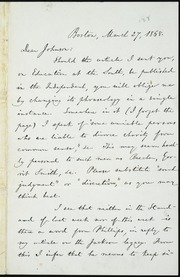 Boston, March 27, 1868.
Dear Johnson:
Should the article I sent you,
on Education at the South, be published
in the Independent, you will oblige me
by changing its phraseology in a single
instance. Somewhere in it (I forget the
page) I speak of some amiable persons
who are liable to divorce charity from
common sense, &c. This may seem hard-
ly personal to such men as Beecher, Ger-
rit Smith, &c. Please substitute "
judgment" or "discretion," as you may
think best.
I see that neither in the Stand-
ard of last week nor of this week is
there a word from Phillips, in reply to
my article on the Jackson legacy. From
this I infer that he means to keep si-